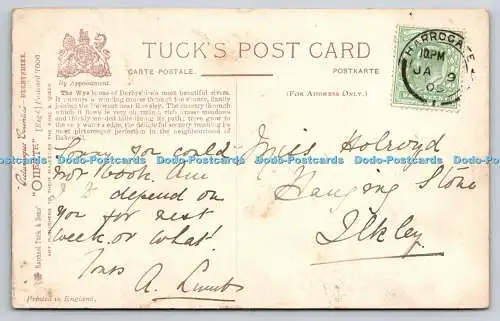 TUCK'S POST CARD
CARTE POSTALE.
POSTKARTE
By Appointment.
(FOR ADDRESS ONLY.)
HARROGATE
10.PM
JA 9
05
The Wye is one of Derbyshire's most beautiful rivers.
It pursues a winding course through the county, finally
joining the Derwent near Rowsley. The scenery through
which it flows is very
and thickly wooded hills along its path, give
to the very edge, the delightful scenery making
most picturesque perfection in the neighbourhood of
Sorry you could
not book. Am
I to depend on
you for next
week or what!
Yours A.
Miss Holroyd
Hanging Stone
Ilkley
"OILETTE" [Regd.] Postcard 7000
DERBYSHIRE.
Raphael Tuck & Sons'
ART PUBLISHERS TO THEIR MAJESTIES THE KING & QUEEN
Printed in England.
Dodo-Postcards Dodo-Postcards Dodo-Postcards Dodo-Postcards Dodo-Postcards